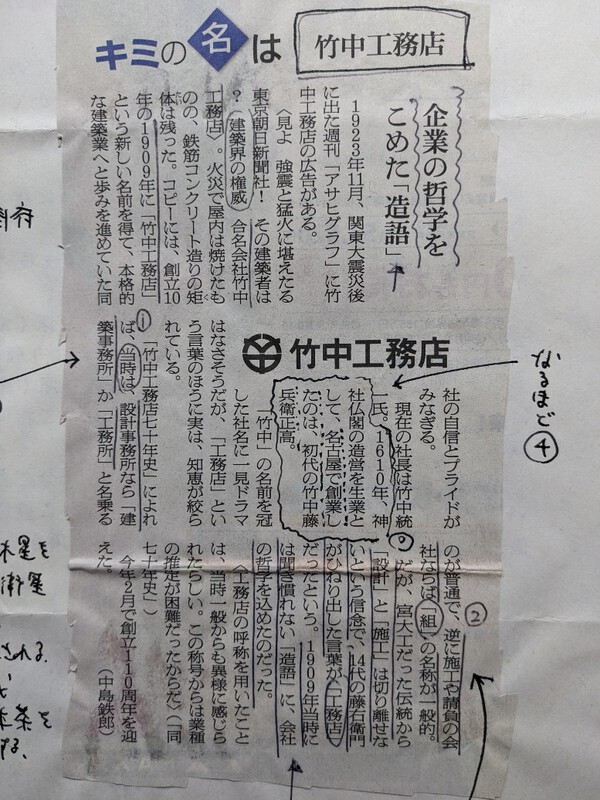 キミの名は
竹中工務店
企業の哲学を
こめた「造語」
1923年11月、関東大震災後
に出た週刊「アサヒグラフ」に竹
中工務店の広告がある。
〈見よ 強震と猛火に堪えたる
東京朝日新聞社! その建築者は
? 建築界の権威 合名会社竹中
工務店〉。火災で屋内は焼けたも
のの、鉄筋コンクリート造りの躯
体は残った。コピーには、創立10
年の1909年に「竹中工務店」
という新しい名前を得て、本格的
な建築業へと歩みを進めていた同
竹中工務店
社の自信とプライドが
みなぎる。
現在の社長は竹中統
一氏。1610年、神
社仏閣の造営を生業と
して、名古屋で創業し
たのは、初代の竹中藤
兵衛正高。
「竹中」の名前を冠
した社名に一見ドラマ
はなさそうだが、「工務店」とい
う言葉のほうに実は、知恵が絞ら
れている。
①
「竹中工務店七十年史」によれ
ば、当時は、設計事務所なら「建
築事務所」か「工務所」と名乗る
なるほど④
②
のが普通で、逆に施工や請負の会
社ならば「組」の名称が一般的。
だが、宮大工だった伝統から
「設計」と「施工」は切り離せな
いという信念で、14代の藤右衛門
がひねり出した言葉が「工務店」
だったという。1909年当時に
は聞き慣れない「造語」に、会社
の哲学を込めたのだった。
〈工務店の呼称を用いたこと
は、当時一般からも異様に感じら
れたらしい。この称号からは業種
の推定が困難だったからだ〉(同
七十年史」)
今年2月で創立110周年を迎
えた。 (中島鉄郎)